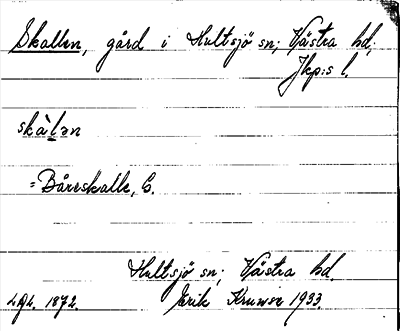 Skallen, gård i Hultsjö sn; Västra hd;
Jkp:s l.
skàlən
= Båreskalle, C.
Hultsjö sn; Västra hd.
1872. Erik Kruuse 1933.